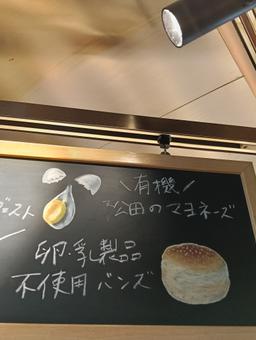 ＼有機／
松田のマヨネーズ
卵・乳製品
不使用 バンズ